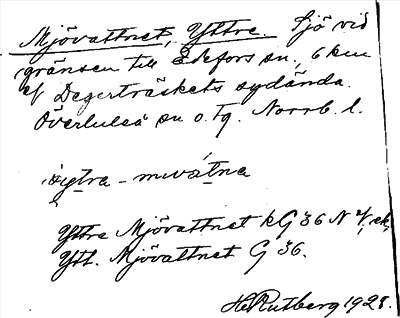 Mjövattnet, Yttre. Sjö vid
gränsen till Edefors sn, 6 km
Degerträskets sydända.
Överluleå sn o. tg. Norrb. l.
ytra - mwatna
Yttre Mjövattnet kG 36 N
Ytt. Mjövattnet G 36.
H. Rutberg 1928.